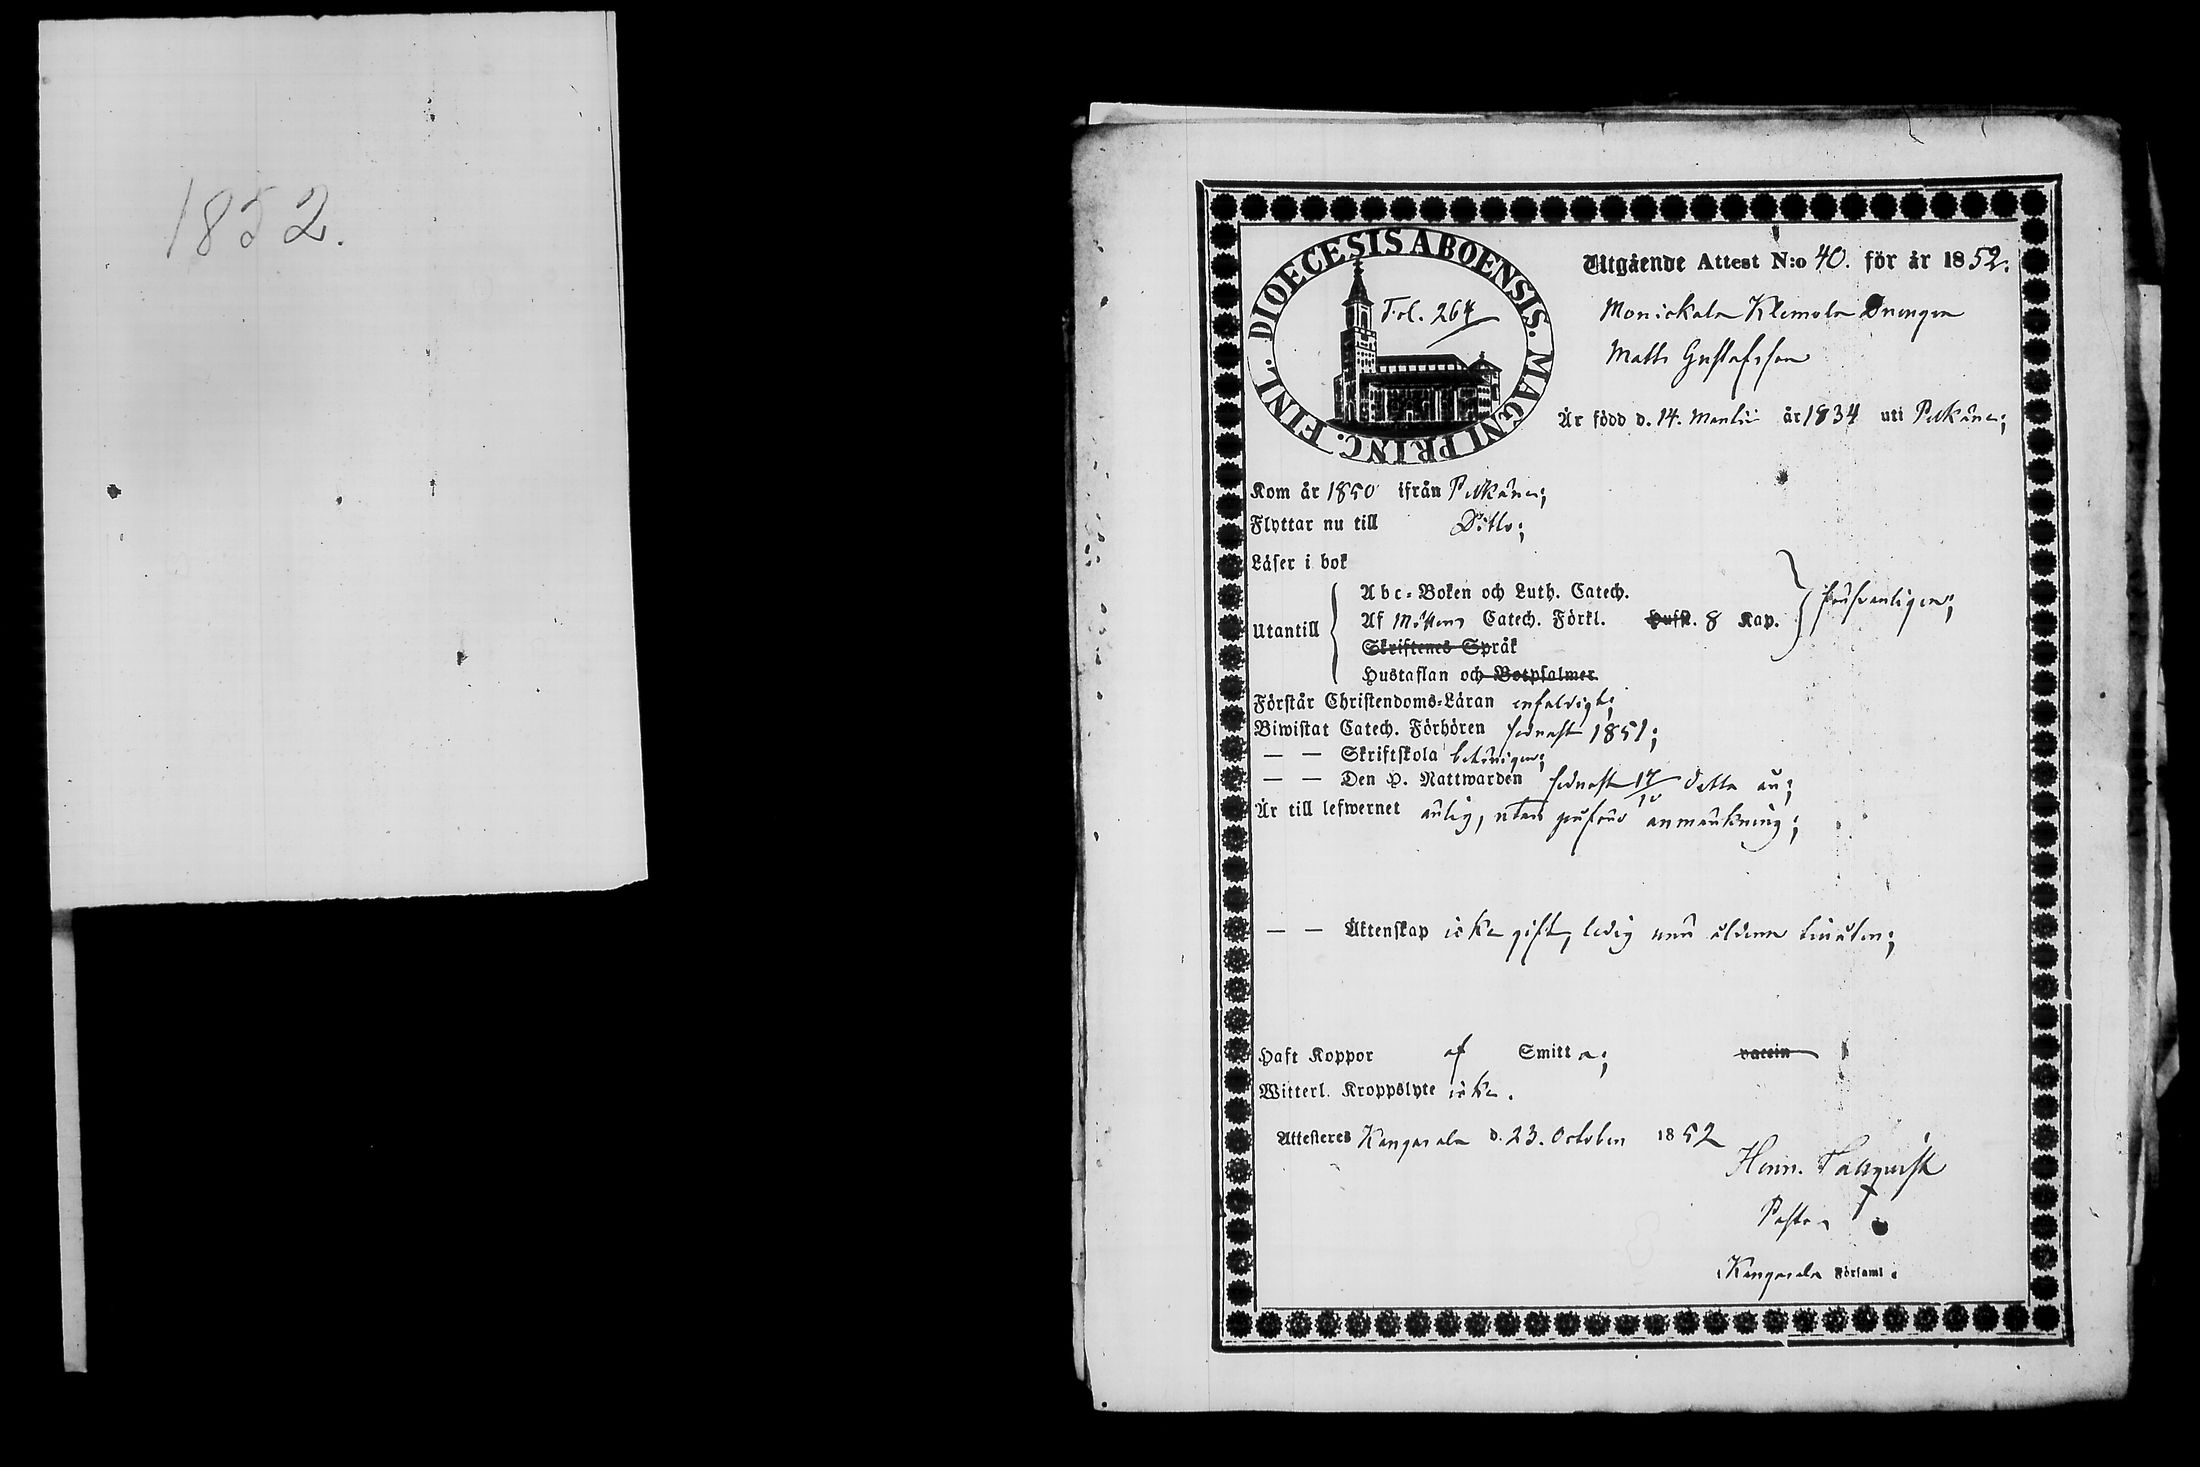 1852.
DIOECESIS ABOENSIS. MAGNI PRINC. FINL.
Fol. 264
Utgående Attest N:o 40. för år 1852.
Monickala Klemola Drengen
Matts Gustafsson
Är född d. 14. Martii år 1834 uti Pelkäne;
Kom år 1850 ifrån Pelkäne;
Flyttar nu till Ditto;
Läser i bok
Utantill
Abc-Boken och Luth. Catech.
Af Möllers Catech. Förkl. Hufst. 8 Kap.
Skriftenes Språk
Hustaflan och Botpsalmer
försvarligen;
Förstår Christendoms-Läran enfaldigt;
Biwistat Catech. Förhören sednast 1851;
— — Skriftskola behörigen;
— — Den H. Nattwarden sednast 17/10 detta år;
Är till lefwernet ärlig, utan grufvud anmärkning;
— — Äktenskap icke gift, ledig
Haft Koppor af Smitta; vaccin
Witterl. Kroppslyte icke.
Attesteres Kangasala d. 23. October 1852
Henr. Tallqvist
Pastor
i Kangasala Församl.